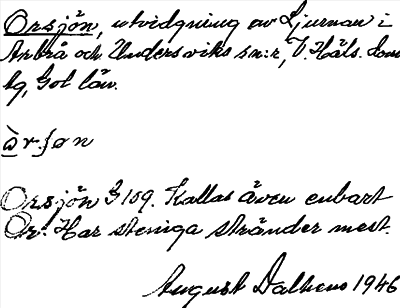 Orsjön, utvidgning av Ljusnan i
Arbrå och Undersviks sn:r, V. Häls. dom
sg, Gvl län.
òr.ʃøn
Orsjön G 109. Kallas även enbart
Or. Har steniga stränder mest.
August Dalhems 1946